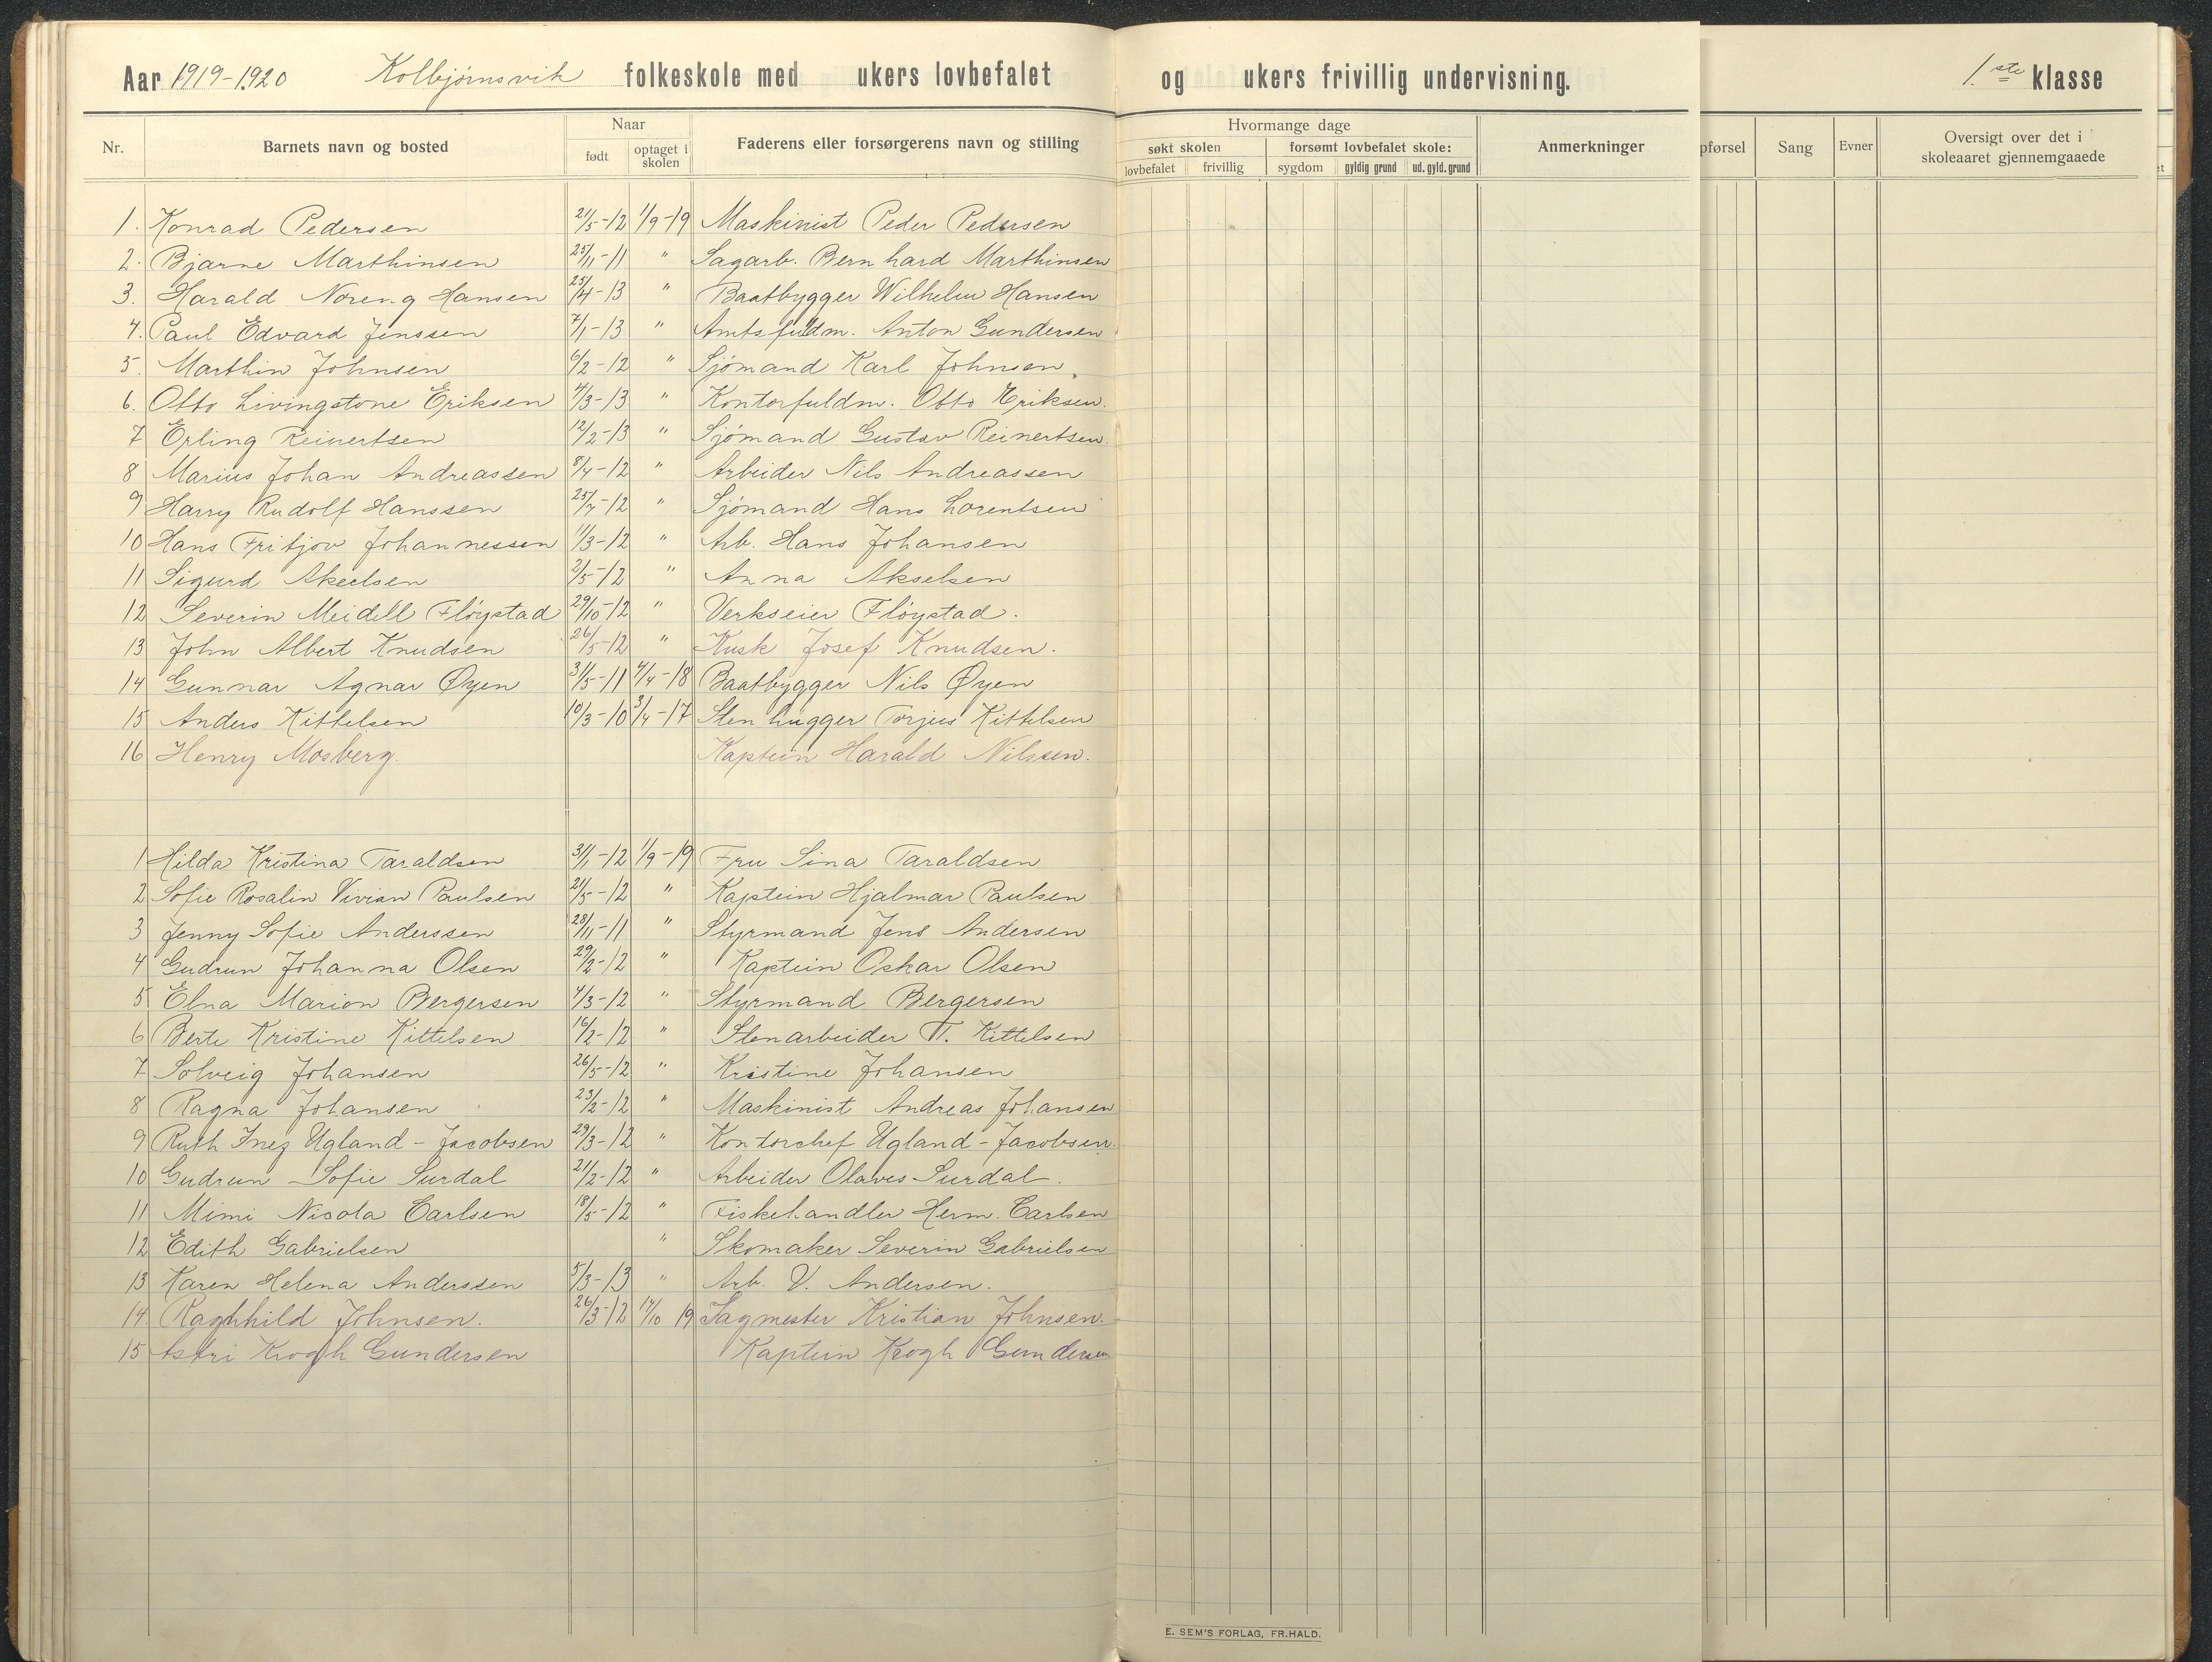 Aar 1919-1920 Kolbjørnsvik folkeskole med ukers lovbefalet og ukers frivillig undervisning. 1.ste klasse
Nr. Barnets navn og bosted Naar født optaget i skolen Faderens eller forsørgerens navn og stilling Hvormange dage søkt skolen lovbefalet frivillig forsømt lovbefalet skole: sygdom gyldig grund ud. gyld. grund Anmerkninger pførsel Sang Evner Oversigt over det i skoleaaret gjennemgaaede
1. Konrad Pedersen 21/5-12 1/9-19 Maskinist Peder Pedersen
2. Bjarne Marthinsen 25/11-11 " Sagarb. Bernhard Marthinsen
3. Harald Noreng Hansen 25/4-13 " Baatbygger Wilhelm Hansen
4. Paul Edvard Jenssen 7/1-13 " Amtsfuldm. Anton Gundersen
5. Marthin Johnsen 6/2-12 " Sjømand Karl Johnsen.
6. Otto Livingstone Eriksen 4/3-13 " Kontorfuldm. Otto Eriksen.
7 Erling Reinertsen 12/2-13 " Sjømand Gustav Reinertsen.
8 Marius Johan Andreassen 8/4-12 " Arbeider Nils Andreassen
9 Harry Rudolf Hanssen 25/7-12 " Sjømand Hans Lorentsen
10 Hans Fritjov Johannessen 11/3-12 " Arb. Hans Johansen
11 Sigurd Akselsen 2/5-12 " Anna Akselsen
12 Severin Meidell Fløystad 29/10-12 " Verkseier Fløystad.
13 John Albert Knudsen 26/5-12 " Kusk Josef Knudsen.
14 Gunnar Agnar Øyen 31/5-11 4/4-18 Baatbygger Nils Øyen
15 Anders Kittelsen 10/3-10 3/4-17 Stenhugger Torjus Kittelsen
16 Henry Mosberg. Kaptein Harald Nilssen.
1 Hilda Kristina Taraldsen 31/1-12 1/9-19 Fru Sina Taraldsen
2 Sofie Rosalin Vivian Paulsen 21/5-12 " Kaptein Hjalmar Paulsen
3 Jenny Sofie Anderssen 28/11-11 " Styrmand Jens Andersen
4 Gudrun Johanna Olsen 29/2-12 " Kaptein Oskar Olsen
5 Elna Marion Bergersen 4/3-12 " Styrmand Bergersen
6 Berte Kristine Kittelsen 16/2-12 " Stenarbeider T. Kittelsen
7 Solveig Johansen 26/5-12 " Kristine Johansen
8 Ragna Johansen 23/2-12 " Maskinist Andreas Johansen
9 Ruth Inez Ugland-Jacobsen 29/3-12 " Kontorchef Ugland-Jacobsen.
10 Gudrun Sofie Surdal 21/2-12 " Arbeider Olaves Surdal.
11 Mimi Nicola Carlsen 18/5-12 " Fiskehandler Herm. Carlsen
12 Edith Gabrielsen " Skomaker Severin Gabrielsen
13 Karen Helena Anderssen 5/3-13 " Arb. V. Andersen.
14. Raghhild Johnsen. 26/3-12 14/10 19 Sagmester Kristian Johnsen.
15 Astri Krogh Gundersen Kaptein Krogh Gundersen
E. SEM'S FORLAG, FR.HALD.